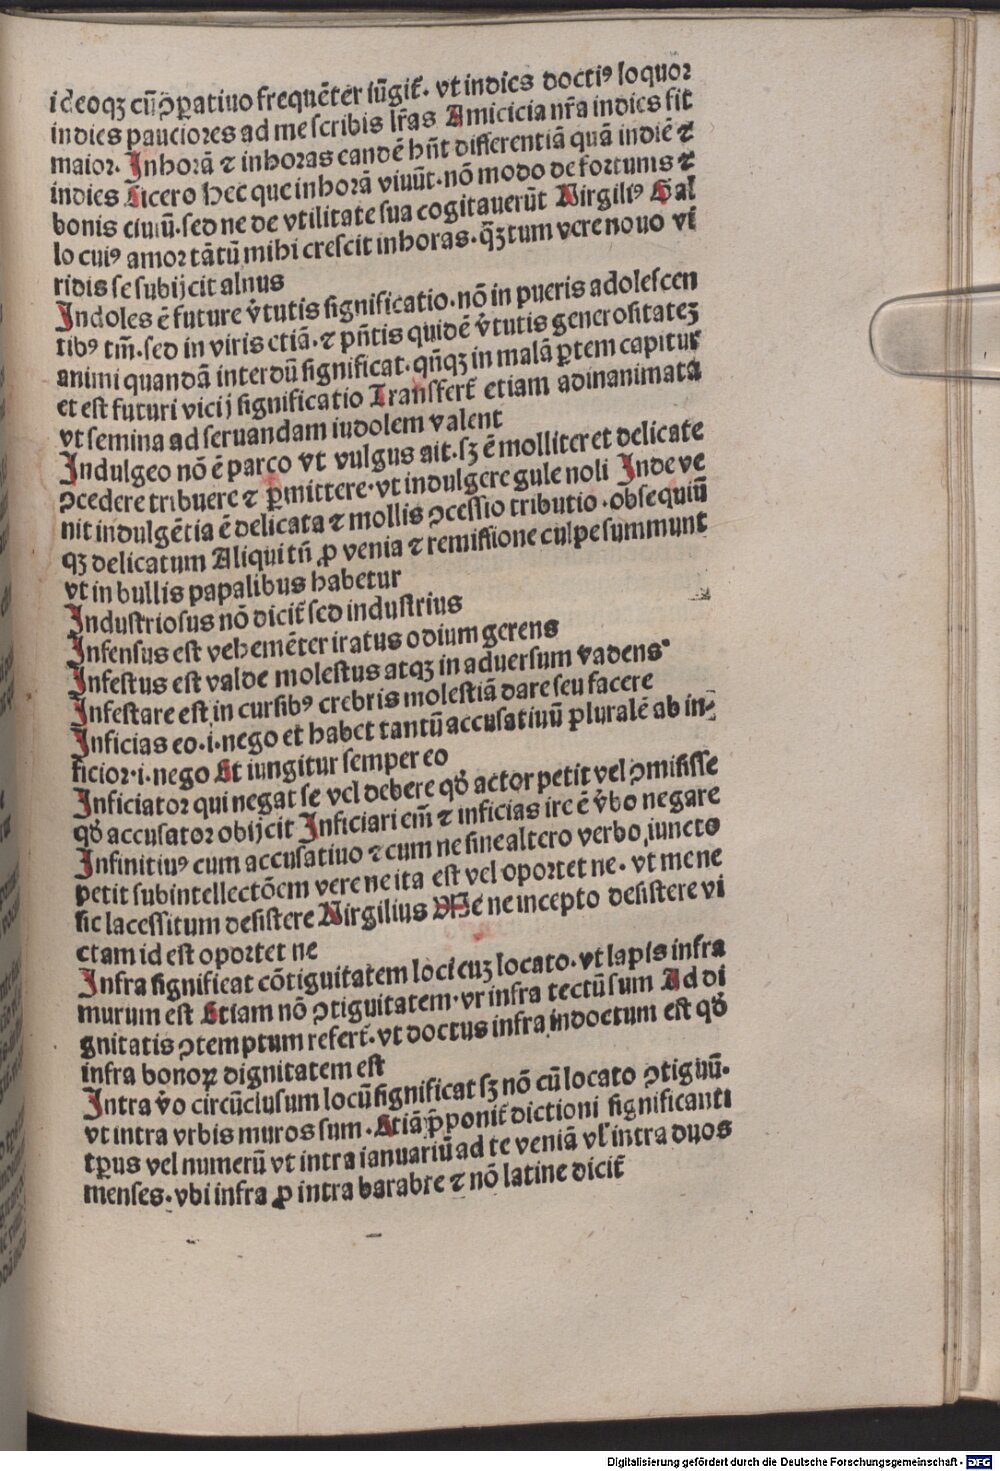 ideoqꝫ cū ꝯꝑatiuo frequēter iūgit̄. vt indies docti⁹ loquor
indies pauciores ad me scribis lr̄as Amicicia nr̄a indies fit
maior. Inhorā ⁊ inhoras eandē hn̄t differentiā quā indiē ⁊
indies Cicero Hec que inhorā viuūt. nō modo de fortunis ⁊
bonis ciuiū. sed ne de vtilitate sua cogitauerūt Virgili⁹ Gal
lo cui⁹ amor tātū mihi crescit inhoras. q̄ꝫtum vere nouo vi
ridis se subijcit alnus
Indoles ē future v̄tutis significatio. nō in pueris adolescen
tib⁹ tm̄. sed in viris etiā. ⁊ pn̄tis quidē v̄tutis generositateꝫ
animi quandā interdū significat. qn̄qꝫ in malā ꝑtem capitur
et est futuri vicij significatio Transfert̄ etiam adinanimata
vt semina ad seruandam iudolem valent
Indulgeo nō ē parco vt vulgus ait. sꝫ ē molliter et delicate
ꝯcedere tribuere ⁊ ꝑmittere. vt indulgere gule noli Inde ve
nit indulgētia ē delicata ⁊ mollis ꝯcessio tributio. obsequiū
qꝫ delicatum Aliqui tn̄ ꝓ venia ⁊ remissione culpe summunt
vt in bullis papalibus habetur
Industriosus nō dicit̄ sed industrius
Infensus est vehemēter iratus odium gerens
Infestus est valde molestus atqꝫ in aduersum vadens
Infestare est in cursib⁹ crebris molestiā dare seu facere
Inficias eo. i. nego et habet tantū accusatiuū pluralē ab in-
ficior. i. nego Et iungitur semper eo
Inficiator qui negat se vel debere qđ actor petit vel ꝯmisisse
qđ accusator obijcit Inficiari em̄ ⁊ inficias ire ē v̄bo negare
Infinitiu⁹ cum accusatiuo ⁊ cum ne sine altero verbo iuncto
petit subintellectōem vere ne ita est vel oportet ne. vt me ne
sic lacessitum desistere Virgilius Me ne incepto desistere vi
ctam id est oportet ne
Infra significat cōtiguitatem loci cuꝫ locato. vt lapis infra
murum est Etiam nō ꝯtiguitatem. vr infra tectū sum Ad di
gnitatis ꝯtemptum refert̄. vt doctus infra indoctum est qđ
infra bonoꝝ dignitatem est
Intra v̄o circūclusum locū significat sꝫ nō cū locato ꝯtiguū.
vt intra vrbis muros sum. Etiā p̄ponit̄ dictioni significanti
tp̄us vel numerū vt intra ianuariū ad te veniā vl̓ intra duos
menses. vbi infra ꝓ intra barabre ⁊ nō latine dicit̄
Digitalisierung gefördert durch die Deutsche Forschungsgemeinschaft - DFG